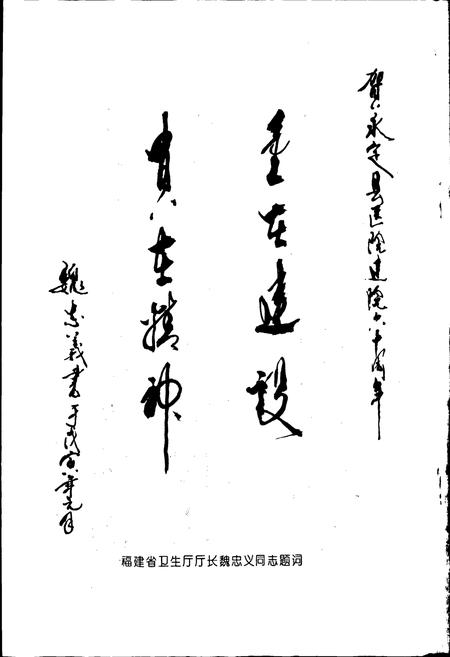 贺永定县医院建院六十周年
重在建设
贵在精神
魏忠义书于戊寅年元月
福建省卫生厅厅长魏忠义同志题词